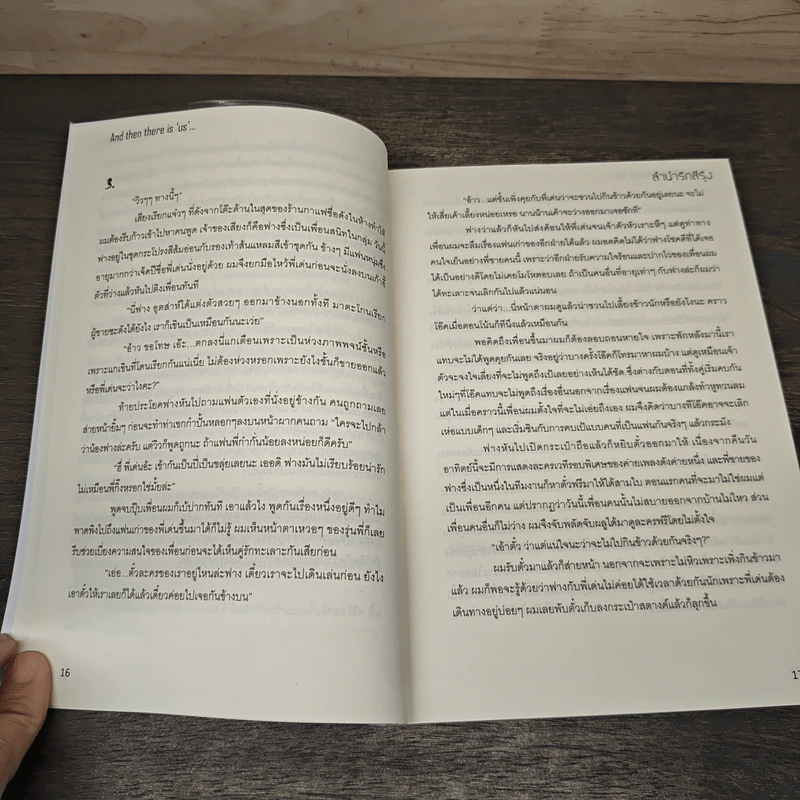 And then there is 'us'...
3.
"วิวๆๆ ทางนี้ๆ"
เสียงเรียกแจ๋วๆ ที่ดังจากโต๊ะด้านในสุดของร้านกาแฟชื่อดังในห้างทำให้
ผมต้องรีบก้าวเข้าไปหาคนพูด เจ้าของเสียงก็คือฟางซึ่งเป็นเพื่อนสนิทในกลุ่ม วันนี้
ฟางอยู่ในชุดกระโปรงสีส้มอ่อนกับรองเท้าส้นแหลมสีเข้าชุดกัน ข้างๆ มีแฟนหนุ่มซึ่ง
อายุมากกว่าเจ็ดปีชื่อพี่เด่นนั่งอยู่ด้วย ผมจึงยกมือไหว้พี่เด่นก่อนจะนั่งลงบนเก้าอี้
ตัวที่ว่างแล้วหันไปติงเพื่อนทันที
"นี่ฟาง อุตส่าห์ได้แต่งตัวสวยๆ ออกมาข้างนอกทั้งที มาตะโกนเรียก
ผู้ชายซะดังได้ยังไง เราก็เขินเป็นเหมือนกันนะเว่ย"
"อ้าว ขอโทษ เอ๊ะ... ตกลงนี่แกเตือนเพราะเป็นห่วงภาพพจน์ชั้นหรือ
เพราะแกเขินที่โดนเรียกกันแน่เนี่ย ไม่ต้องห่วงหรอกเพราะยังไงชั้นก็ขายออกแล้ว
หรือพี่เด่นจะว่าไงคะ?"
ท้ายประโยคฟางหันไปถามแฟนตัวเองที่นั่งอยู่ข้างกัน คนถูกถามเลย
ส่ายหน้ายิ้มๆ ก่อนจะทำท่าเขกกำปั้นหลอกๆลงบนหน้าผากคนถาม "ใครจะไปกล้า
ว่าน้องฟางล่ะครับ แต่วิวก็พูดถูกนะ ถ้าแฟนพี่กำกันน้อยลงหน่อยก็ดีครับ"
"ฮี่ พี่เด่นอ้ะ เข้ากันเป็นปี่เป็นขลุ่ยเลยนะ เออดิ ฟางมันไม่เรียบร้อยน่ารัก
ไม่เหมือนพี่กิ๊งหรอกใช่มั้ยล่ะ"
พูดจบปุ๊บเพื่อนผมก็เบ้ปากทันที เอาแล้วไง พูดกันเรื่องหนึ่งอยู่ดีๆ ทำไม
พาดพิงไปถึงแฟนเก่าของพี่เด่นขึ้นมาได้ก็ไม่รู้ ผมเห็นหน้าตาเหวอๆ ของรุ่นพี่ก็เลย
รีบช่วยเบี่ยงความสนใจของเพื่อนก่อนจะได้เห็นคู่รักทะเลาะกันเสียก่อน
"เอ่อ...ตั๋วละครของเราอยู่ไหนล่ะฟาง เดี๋ยวเราจะไปเดินเล่นก่อน ยังไง
เอาตั๋วให้เราเลยก็ได้แล้วเดี๋ยวค่อยไปเจอกันข้างบน"
16
ลำนำรักสีรุ้ง
"อ้าว...แต่ชั้นเพิ่งคุยกับพี่เด่นว่าจะชวนไปกินข้าวด้วยกันอยู่เลยนะ จะไม่
ให้เสี่ยเค้าเลี้ยงหน่อยเหรอ นานน้านเค้าจะว่างออกมาเจอซักที"
ฟางว่าแล้วก็หันไปส่งค้อนให้พี่เด่นจนเจ้าตัวหัวเราะหึๆ แต่ดูท่าทาง
เพื่อนผมจะลืมเรื่องแฟนเก่าของอีกฝ่ายได้แล้ว ผมอดคิดไม่ได้ว่าฟางโชคดีที่ได้เจอ
คนใจเย็นอย่างพี่ชายคนนี้ เพราะว่าอีกฝ่ายรับความใจร้อนและปากไวของเพื่อนผม
ได้เป็นอย่างดีโดยไม่เคยโมโหตอบเลย ถ้าเป็นคนอื่นที่อายุเท่าๆ กับฟางล่ะก็ผมว่า
ได้ทะเลาะจนเลิกกันไปแล้วแน่นอน
ว่าแต่ว่า...นี่หน้าตาผมดูแล้วน่าชวนไปเลี้ยงข้าวนักหรือยังไงนะ คราว
โอ๊คเมื่อตอนโน้นก็ทีนึงแล้วเหมือนกัน
พอคิดถึงเพื่อนขึ้นมาผมก็ต้องลอบถอนหายใจ เพราะพักหลังมานี้เรา
แทบจะไม่ได้พูดคุยกันเลย จริงอยู่ว่าบางครั้งโอ๊คก็โทรมาหาผมบ้าง แต่ดูเหมือนเจ้า
ตัวจะจงใจเลี่ยงที่จะไม่พูดถึงเป้เลยอย่างเห็นได้ชัด ซึ่งต่างกับตอนที่ทั้งคู่เริ่มคบกัน
ใหม่ๆที่โอ๊คแทบจะไม่พูดถึงเรื่องอื่นนอกจากเรื่องแฟนจนผมต้องแกล้งทำหูทวนลม
แต่ในเมื่อคราวนี้เพื่อนผมตั้งใจที่จะไม่เอ่ยถึงเอง ผมจึงคิดว่าบางทีโอ๊คอาจจะเลิก
เห่อแบบเด็กๆ และเริ่มชินกับการคบเป้แบบคนที่เป็นแฟนกันจริงๆ แล้วกระมัง
ฟางหันไปเปิดกระเป๋าถือแล้วก็หยิบตั๋วออกมาให้ เนื่องจากคืนวัน
อาทิตย์นี้จะมีการแสดงละครเวทีรอบพิเศษของค่ายเพลงดังค่ายหนึ่ง และพี่ชายของ
ฟางซึ่งเป็นหนึ่งในทีมงานก็หาตั๋วฟรีมาให้ได้สามใบ ตอนแรกคนที่จะมาไม่ใช่ผมแต่
เป็นเพื่อนอีกคน แต่ปรากฏว่าวันนี้เพื่อนคนนั้นไม่สบายออกจากบ้านไม่ไหว ส่วน
เพื่อนคนอื่นก็ไม่ว่าง ผมจึงจับพลัดจับผลูได้มาดูละครฟรีโดยไม่ตั้งใจ
"เอ้าตั๋ว ว่าแต่แน่ใจนะว่าจะไม่ไปกินข้าวด้วยกันจริงๆ?"
ผมรับตั๋วมาแล้วก็ส่ายหน้า นอกจากจะเพราะไม่หิวเพราะเพิ่งกินข้าวมา
แล้ว ผมก็พอจะรู้ด้วยว่าฟางกับพี่เด่นไม่ค่อยได้ใช้เวลาด้วยกันนักเพราะพี่เด่นต้อง
เดินทางอยู่บ่อยๆ ผมเลยพับตั๋วเก็บลงกระเป๋าสตางค์แล้วก็ลุกขึ้น